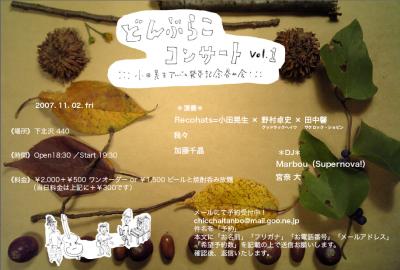 どんぶらこ
コンサート vol.1
2007. 11. 02. fri
《場所》 下北沢 440
《時間》 Open18:30 / Start 19:30
《料金》 ¥2,000+¥500 ワンオーダー or ¥1,500 ビールと焼酎呑み放題
(当日料金は上記に+¥300です)
＊演奏＊
Recohats=小田晃生 × 野村卓史 × 田中馨
グッドラックヘイワ サケロック・ショピン
我々
加藤千晶
＊DJ＊
Marbou (Supernova!)
宮奈 大
メールにて予約受付中！
chicchaitanbo@mail.goo.ne.jp
件名を「予約」
本文に「お名前」「フリガナ」「お電話番号」「メールアドレス」
「希望予約数」を記載の上で送信お願いします。
確認後、返信いたします。